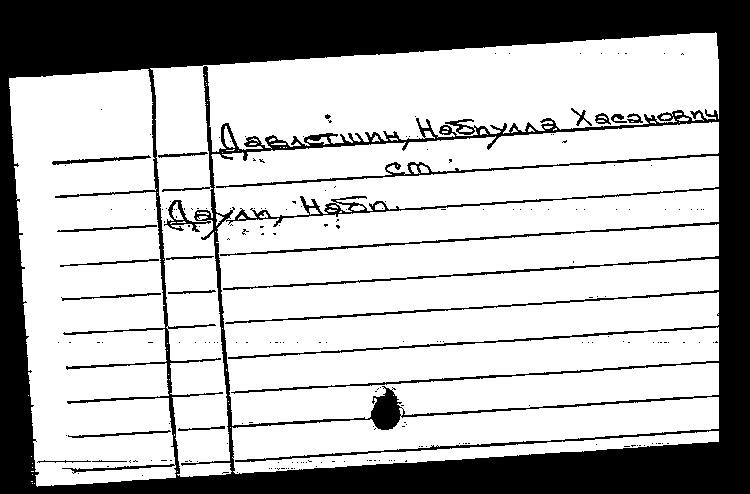 Давлетшин, Набиулла Хасанович
см.
Даули, Наби.